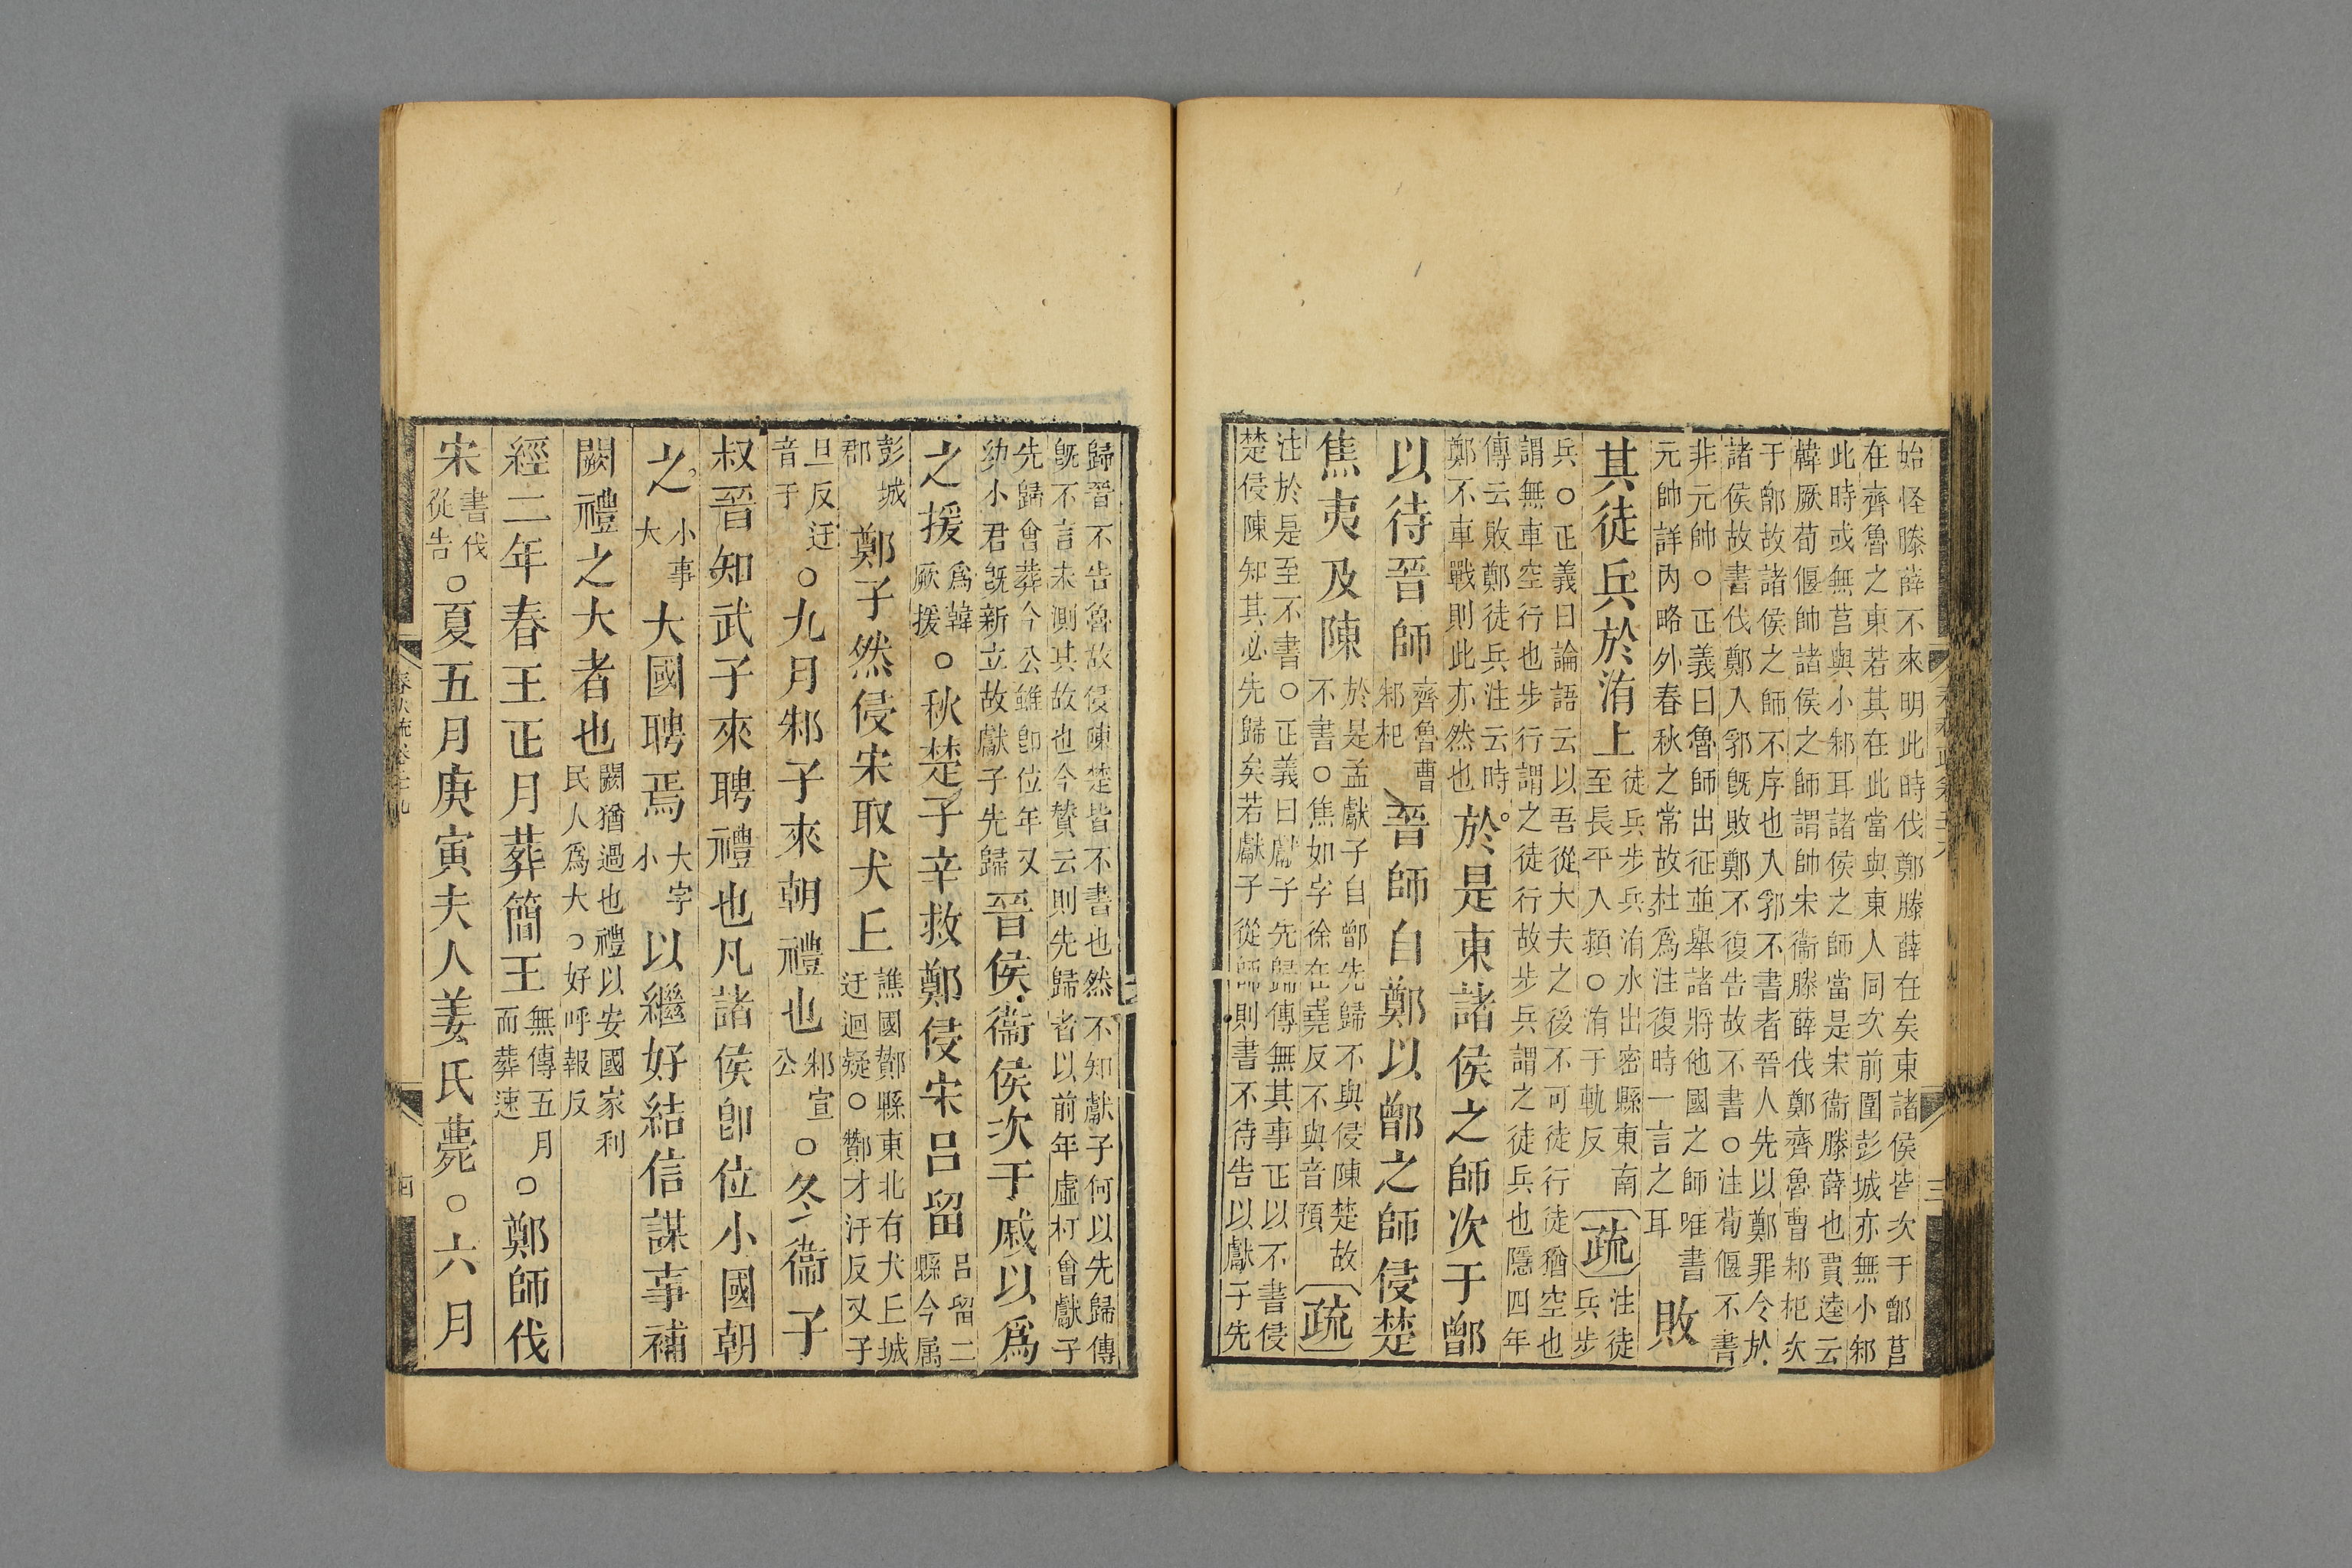 始怪滕薛不來明此時伐鄭滕薛在矣東諸侯皆次于鄫莒
在齊魯之東若其在此當與東人同次前圍彭城亦無小邾
此時或無莒與小邾耳諸侯之師當是宋衞滕薛也賈逵云
韓厥荀偃帥諸侯之師謂帥宋衞滕薛伐鄭齊魯曹邾杞次
于鄫故諸侯之師不序也入郛不書者晉人先以鄭罪令於
諸侯故書伐鄭入郛旣敗鄭不復告故不書○注荀偃不書
非元帥○正義曰魯師出征並舉諸將他國之師唯書
元帥詳內略外春秋之常故杜爲注復時一言之耳
敗
其徒兵於洧上
徒兵步兵洧水出密縣東南
至長平入潁○洧于軌反
疏
注徒
兵步
兵○正義曰論語云以吾從大夫之後不可徒行徒猶空也
謂無車空行也步行謂之徒行故步兵謂之徒兵也隱四年
傳云敗鄭徒兵注云時
鄭不車戰則此亦然也
於是東諸侯之師次于鄫
以待晉師
齊魯曹
邾杞
晉師自鄭以鄫之師侵楚
焦夷及陳
於是孟獻子自鄫先歸不與侵陳楚故
不書○焦如字徐在堯反不與音預
疏
注於是至不書○正義曰獻子先歸傳無其事正以不書侵
楚侵陳知其必先歸矣若獻子從師則書不待告以獻子先
歸晉不告魯故侵陳楚皆不書也然不知獻子何以先歸傳
旣不言未測其故也今贊云則先歸者以前年虛朾會獻子
先歸會葬今公雖卽位年又
幼小君旣新立故獻子先歸
晉侯衞侯次于戚以爲
之援
爲韓
厥援
○秋楚子辛救鄭侵宋呂留
呂留二
縣今属
彭城
郡
鄭子然侵宋取犬丘
譙國酇縣東北有犬丘城
迂迴疑○酇才汙反又子
旦反迂
音于
○九月邾子來朝禮也
邾宣
公
○冬衞子
叔晉知武子來聘禮也凡諸侯卽位小國朝
之
小事
大
大國聘焉
大字
小
以繼好結信謀事補
闕禮之大者也
闕猶過也禮以安國家利
民人爲大○好呼報反
經二年春王正月葬簡王
無傳五月
而葬速
○鄭師伐
宋
書伐
從告
○夏五月庚寅夫人姜氏薨○六月